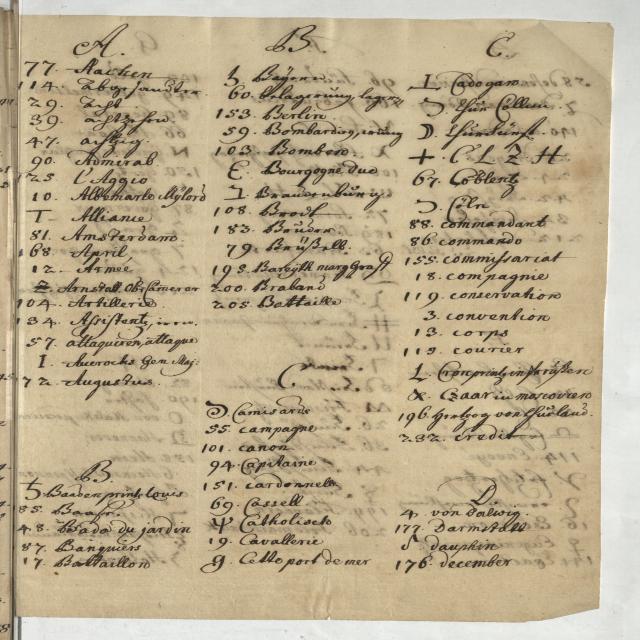 A.
77. Aachen
114. abgesandter
29. acht
39. achtzehn
47. achzig
90. Admiral
125 l'Aggio
10. Albemarle Mylord
T Alliance
81. Amsterdam.
168. April,
12. Armée
Arnstatt. Ob:
104. Artillerie
134. Assistentz,
57. attaquiren, attaque
I. Auerochs Gen. Maj:
72. Augustus.
B
Baaden printz Louis
85. Baaßr.
48. Bada du jardin
87. Banquiers
17. Battaillon
B.
Bayern
60. belagerung,
153. Berlin
59. Bombardirung
103. Bomben
E. Bourgogne duc
I. Brandenburg
108. Brodt
183. Brüder
79. Brüßell.
195. Bareyth marg Graff
200. Braband
205. Battaille
C.
Camisards
55. campagne
101. canon
94. Capitaine
151. cardonnels
69. Cassell
Ψ Catholisch
19. Cavallerie
9. Cette port de mer
C.
I Cadogan
Chur Cöllen
D. Churfürst
+. C L Z H
67. Coblentz
Cöln
88. commandant
86. commando
155. commissariat
18. compagnie
119. conservation
3. convention
13. corps
113. courier
L. Cronprintz in Preüßen
X. Czaar in moscovien
196. Hertzog von Churland.
232. credit
D.
4. von Dalwig.
177. Darmstatt
dauphin
176. december